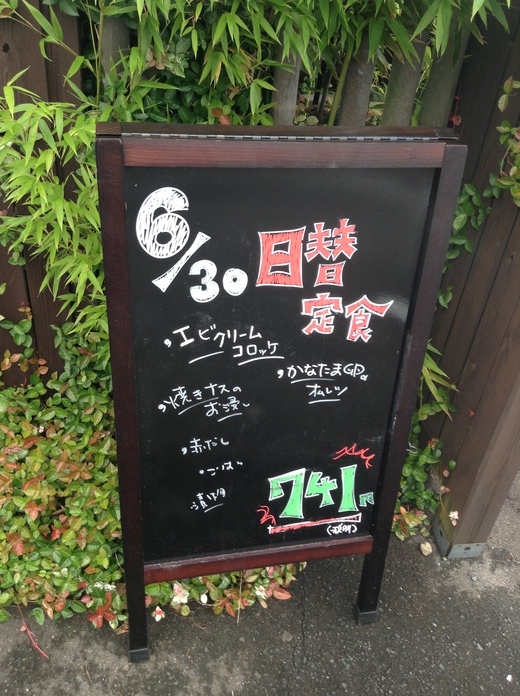 6/30 日替
定食
エビクリーム
コロッケ
かなたまGP
オムレツ
焼きナスの
お浸し
赤だし
ごはん
漬物
741円
(税別)